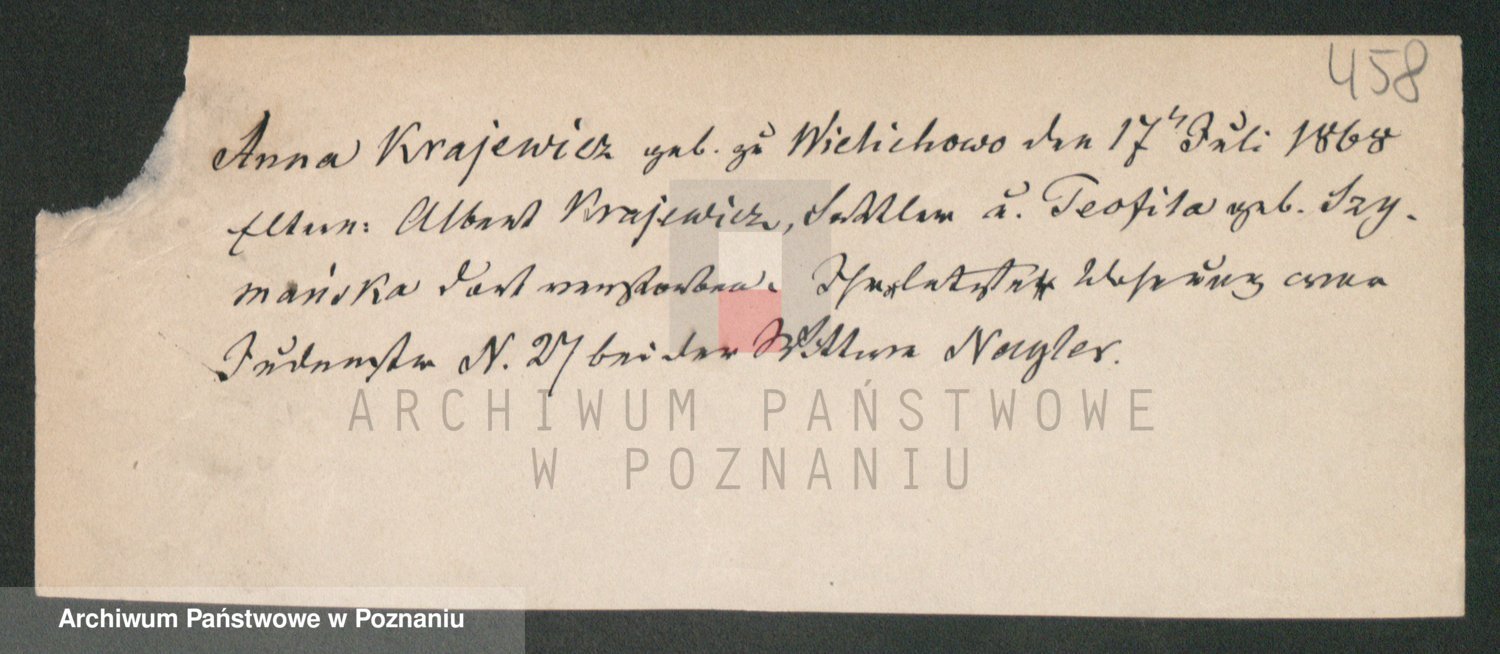 458
Anna Krajewicz geb. zu Wielichowo den 17t Juli 1868
Eltern: Albert Krajewicz, Sattler u. Teofila geb. Szy-
mańska dort verstorben. Ihre letzte Wohnung war
Judenstr N. 27 bei der Wittwe Nagler.
ARCHIWUM PAŃSTWOWE
W POZNANIU
Archiwum Państwowe w Poznaniu